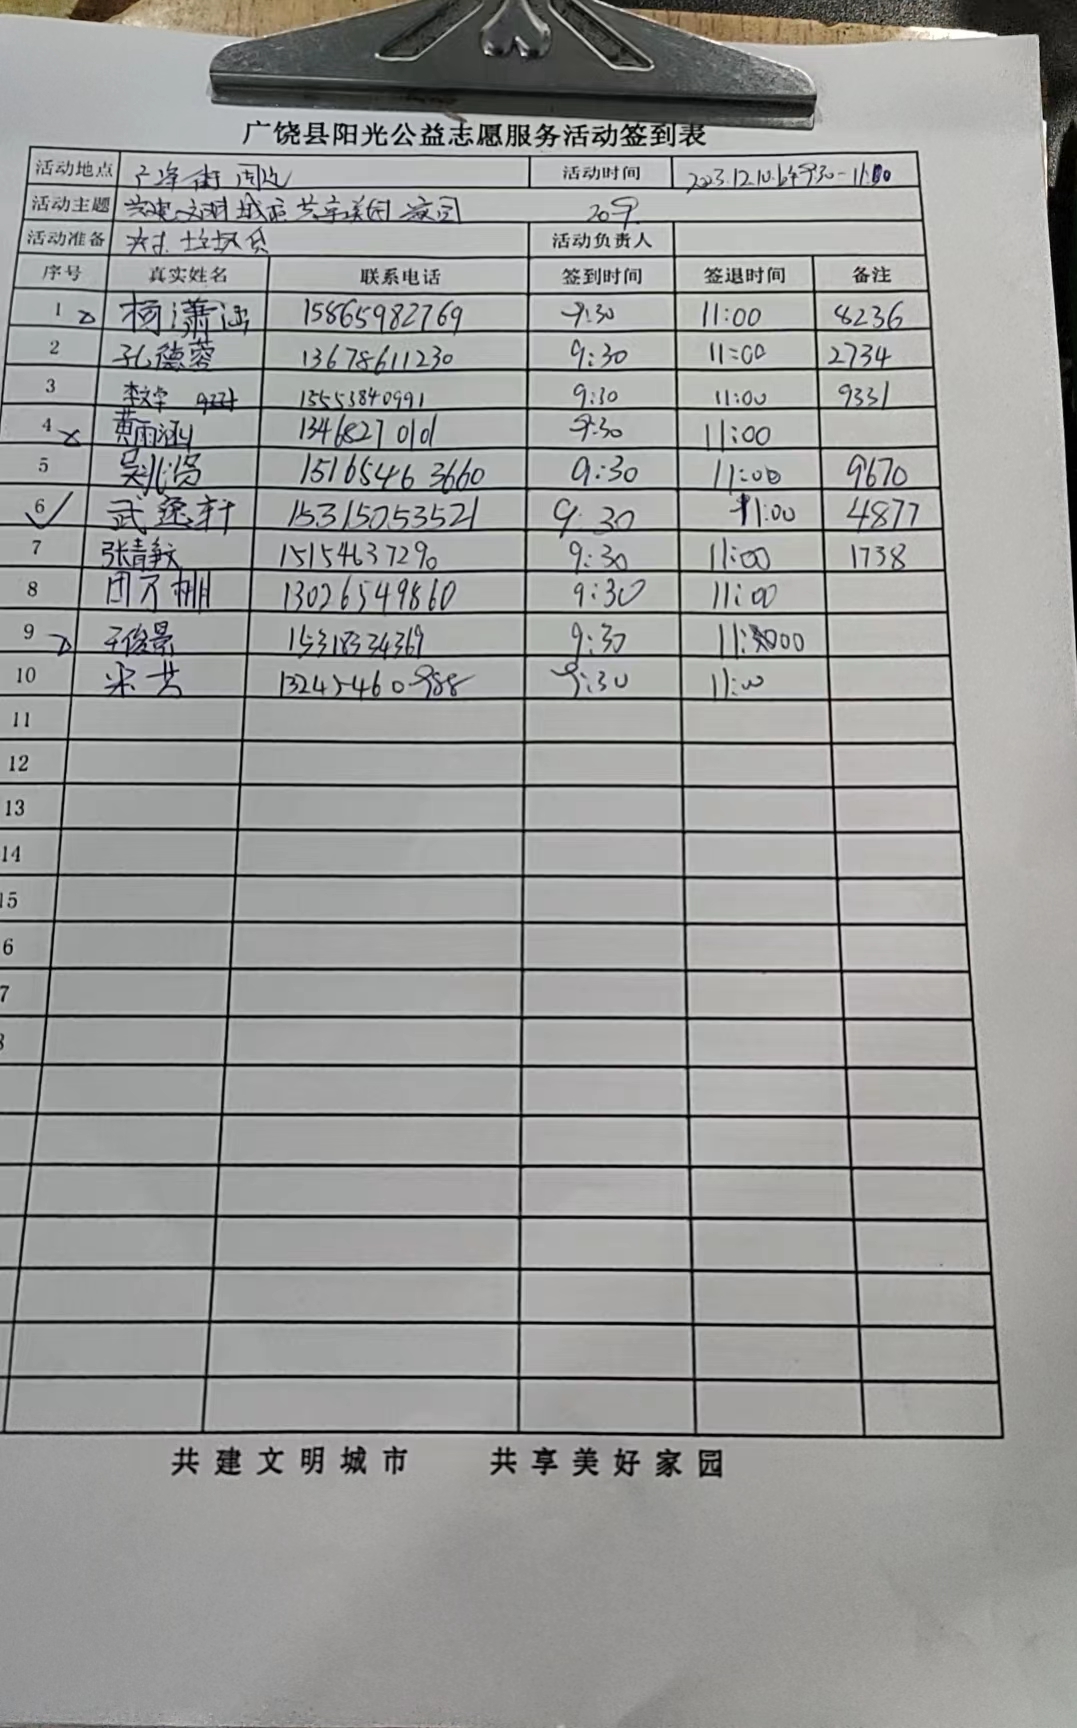 广饶县阳光公益志愿服务活动签到表
活动地点 街 周边 活动时间 2023.12.10. 9:30-11:00
活动主题 共建文明城市 共享美好家园
活动准备 夹子 垃圾袋 活动负责人
序号 真实姓名 联系电话 签到时间 签退时间 备注
1 杨潇涵 15865982769 9:30 11:00 8236
2 孔德蓉 13678611230 9:30 11:00 2734
3 15553840991 9:30 11:00 9331
4 黄雨涵 13468270101 9:30 11:00
5 吴兆 15165463660 9:30 11:00 9670
6 武逸轩 15315053521 9:30 11:00 4877
7 张静文 15154637290 9:30 11:00 1738
8 13026549860 9:30 11:00
9 王俊景 15318334369 9:30 11:00
10 9:30 11:00
11
12
13
14
15
6
7
8
共建文明城市 共享美好家园